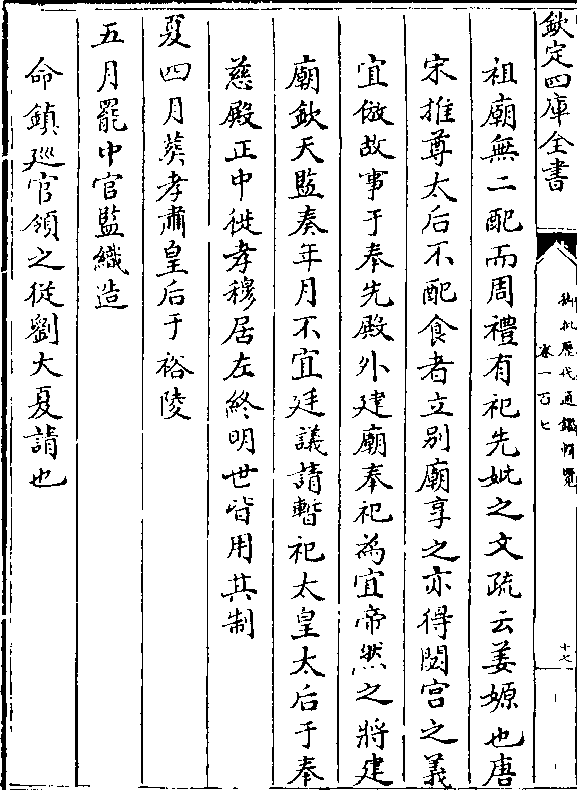 欽定四庫全書
御批歷代通鑑輯覽
卷一百七
十七
祖廟無二配而周禮有祀先妣之文疏云姜嫄也唐
宋推尊太后不配食者立别廟享之亦得閟宮之義
宜倣故事于奉先殿外建廟奉祀為宜帝然之將建
廟欽天監奏年月不宜廷議請暫祀太皇太后于奉
慈殿正中徙孝穆居左終明世皆用其制
夏四月葬孝肅皇后于裕陵
五月罷中官監織造
命鎮廵官領之從劉大夏請也